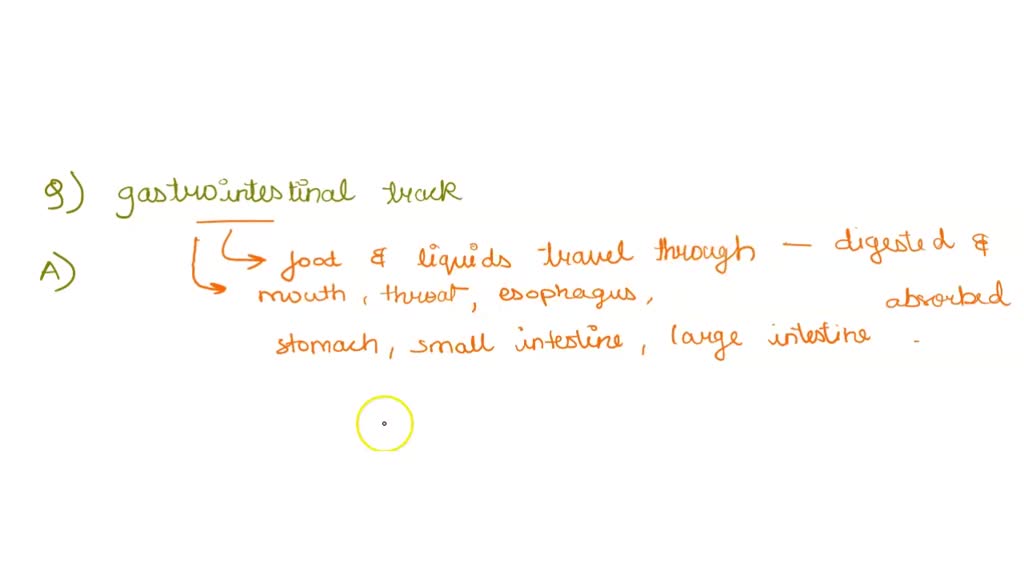 Q) gastrointestinal track
A)
food & liquids travel through — digested & absorbed
mouth, throat, esophagus,
stomach, small intestine, large intestine.